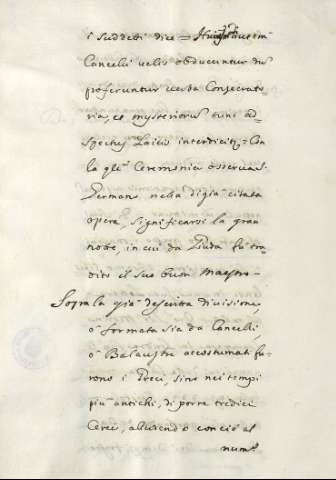 i suddetti dice = Huius autem
Cancelli velis obducuntur dum
proferuntur verba Consecrato
ria, et mysteriorum tunc ad-
spectus Laicis interdicitur = Con
la qle Ceremonia osserva S.
Germano nella digià citata
opera, significarsi la gran
notte, in cui da Giuda fù tra-
dito il suo buon Maestro -
Sopra la già descritta divisione,
o formata sia da Cancelli
o Balaustre accostumati fu-
rono i Greci, sino nei tempi
più antichi, di porre tredici
Cerei, alludendo con ciò al
num.o